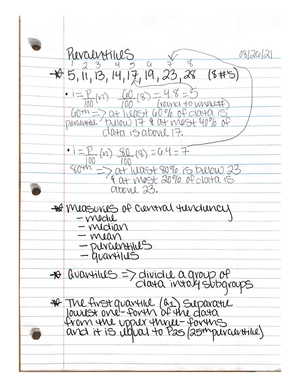 Percentiles 08/26/21
1 2 3 4 5 6 7 8
* 5, 11, 13, 14, 17, 19, 23, 28 (8 #s)
• i = P/100 (n) 60/100 (8) = 4.8 = 5
(round to whole #)
60th => at least 60% of data is
percentile below 17 & at most 40% of
data is above 17.
• i = P/100 (n) 80/100 (8) = 6.4 = 7
80th => at least 80% is below 23
& at most 20% of data is
above 23.
* Measures of central tendency
- mode
- median
- mean
- percentiles
- quartiles
* Quartiles => divide a group of
data into 4 subgroups
* The first quartile (Q1) separate
lowest one-forth of the data
from the upper three-forths
and it is equal to P25 (25th percentile)